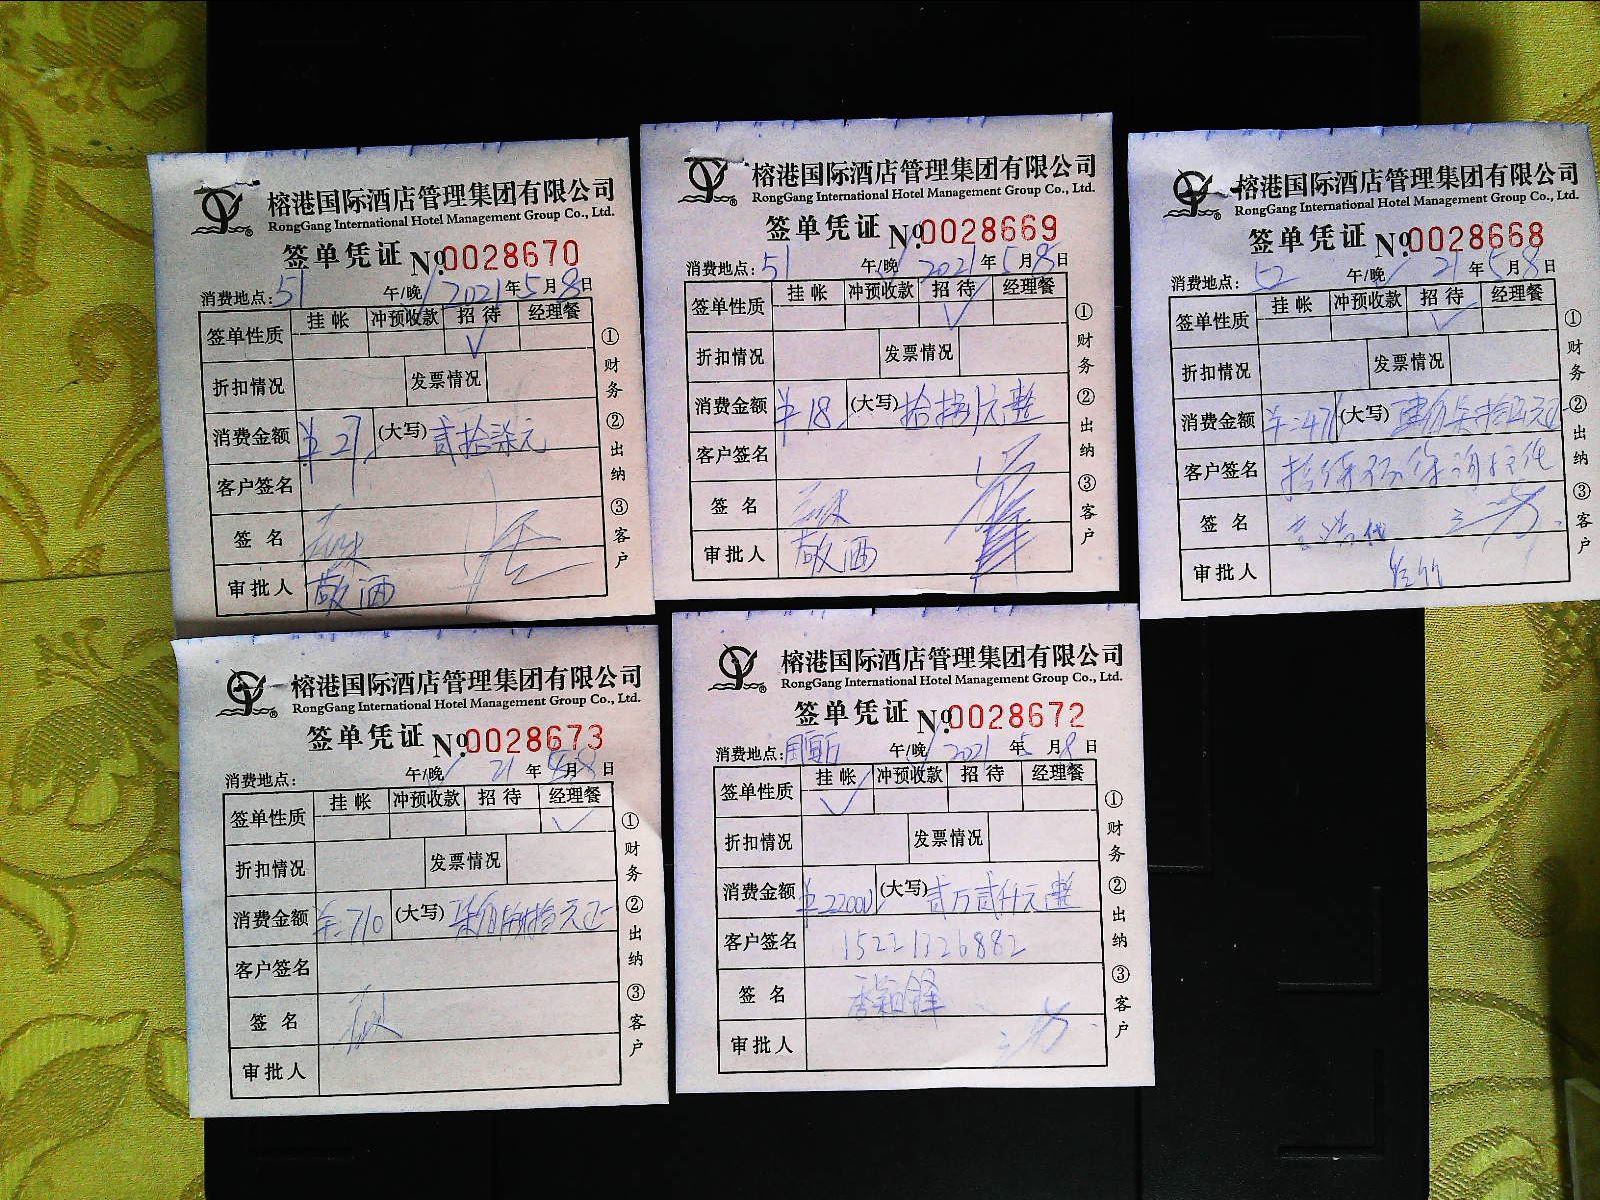 榕港国际酒店管理集团有限公司
RongGang International Hotel Management Group Co., Ltd.
签单凭证 №0028670
消费地点：51 午/晚 2021年5月8日
签单性质 挂帐 冲预收款 招待 经理餐
√
折扣情况 发票情况
消费金额 ¥27 (大写) 贰拾柒元
客户签名
签名
审批人 敬酒
①财务 ②出纳 ③客户
榕港国际酒店管理集团有限公司
RongGang International Hotel Management Group Co., Ltd.
签单凭证 №0028669
消费地点：51 午/晚 2021年5月8日
签单性质 挂帐 冲预收款 招待 经理餐
√
折扣情况 发票情况
消费金额 ¥18 (大写) 拾捌元整
客户签名
签名
审批人 敬酒
①财务 ②出纳 ③客户
榕港国际酒店管理集团有限公司
RongGang International Hotel Management Group Co., Ltd.
签单凭证 №0028668
消费地点：52 午/晚 21年5月8日
签单性质 挂帐 冲预收款 招待 经理餐
√
折扣情况 发票情况
消费金额 (大写)
客户签名
签名
审批人
①财务 ②出纳 ③客户
榕港国际酒店管理集团有限公司
RongGang International Hotel Management Group Co., Ltd.
签单凭证 №0028673
消费地点： 午/晚 21年5月8日
签单性质 挂帐 冲预收款 招待 经理餐
√
折扣情况 发票情况
消费金额 ¥:710 (大写) 柒佰壹拾元正
客户签名
签名
审批人
①财务 ②出纳 ③客户
榕港国际酒店管理集团有限公司
RongGang International Hotel Management Group Co., Ltd.
签单凭证 №0028672
消费地点： 午/晚 2021年5月8日
签单性质 挂帐 冲预收款 招待 经理餐
√
折扣情况 发票情况
消费金额 ¥22000 (大写) 贰万贰仟元整
客户签名 15221326882
签名 李颖锋
审批人
①财务 ②出纳 ③客户